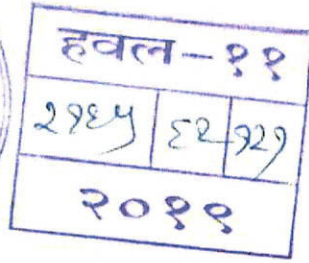 हवल-११
२१६५ ६२ १२१
२०१९